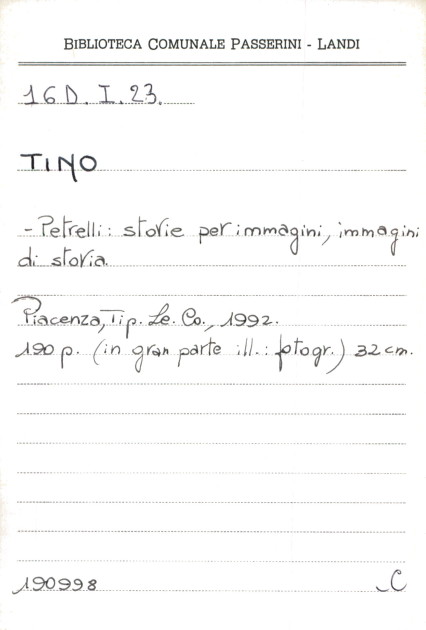 BIBLIOTECA COMUNALE PASSERINI - LANDI
16 D. I. 23.
TINO
- Petrelli : storie per immagini, immagini
di storia.
Piacenza, Tip. Le. Co., 1992.
190 p. (in gran parte ill. : fotogr.) 32 cm.
190998
C